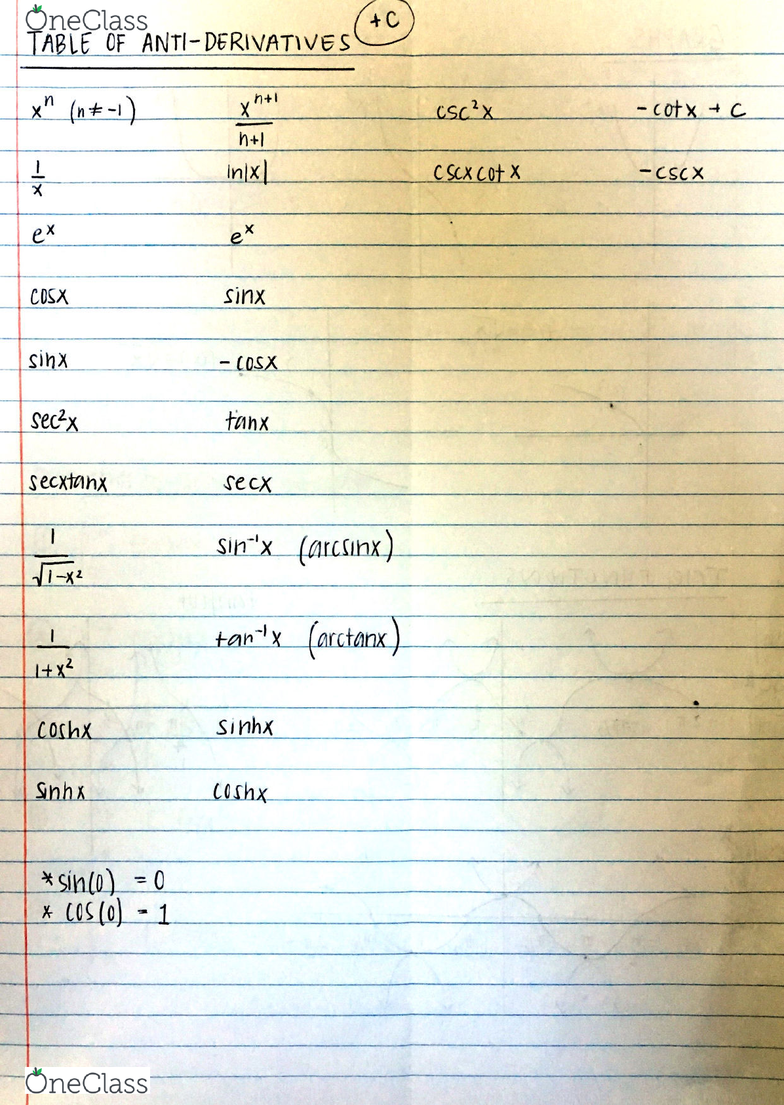 OneClass
TABLE OF ANTI-DERIVATIVES +C
xⁿ (n ≠ -1) xⁿ⁺¹/n+1 csc²x -cotx + C
1/x ln|x| cscxcotx -cscx
eˣ eˣ
cosx sinx
sinx -cosx
sec²x tanx
secxtanx secx
1/√1-x² sin⁻¹x (arcsinx)
1/1+x² tan⁻¹x (arctanx)
coshx sinhx
sinhx coshx
*sin(0) = 0
* cos(0) = 1
OneClass